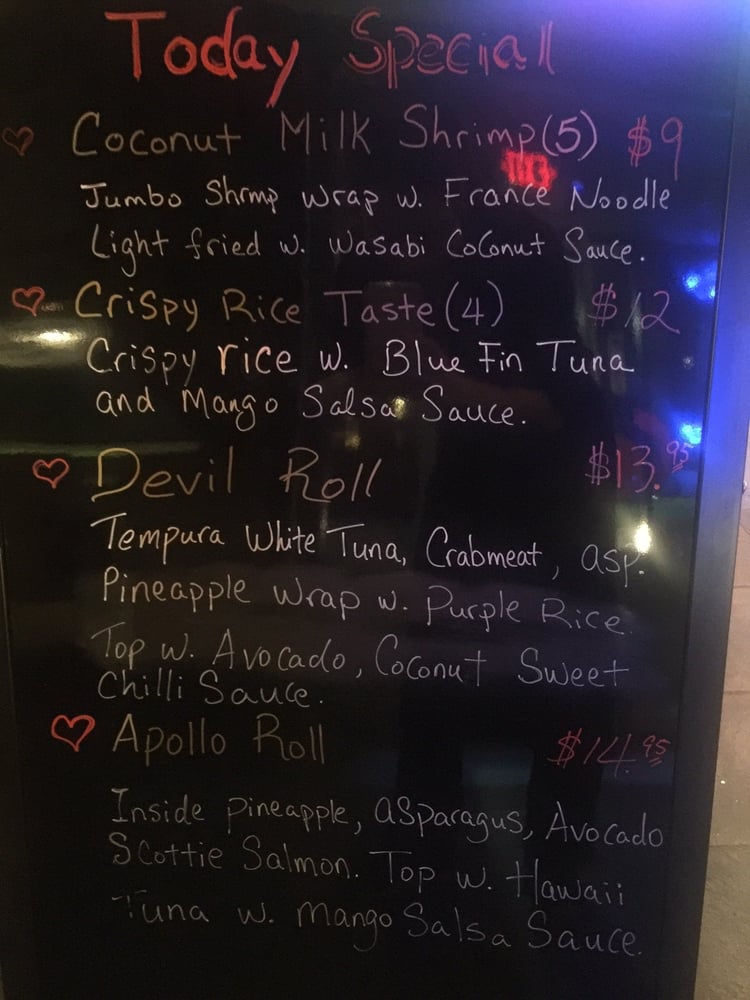 Today Special
Coconut Milk Shrimp(5) $9
Jumbo Shrmp wrap w. France Noodle
Light fried w. Wasabi Coconut Sauce.
Crispy Rice Taste(4) $12
Crispy rice w. Blue Fin Tuna
and Mango Salsa Sauce.
Devil Roll $13.95
Tempura White Tuna, Crabmeat, asp.
Pineapple wrap w. Purple Rice.
Top w. Avocado, Coconut Sweet
Chilli Sauce.
Apollo Roll $14.95
Inside pineapple, asparagus, Avocado
Scottie Salmon. Top w. Hawaii
Tuna w. Mango Salsa Sauce.